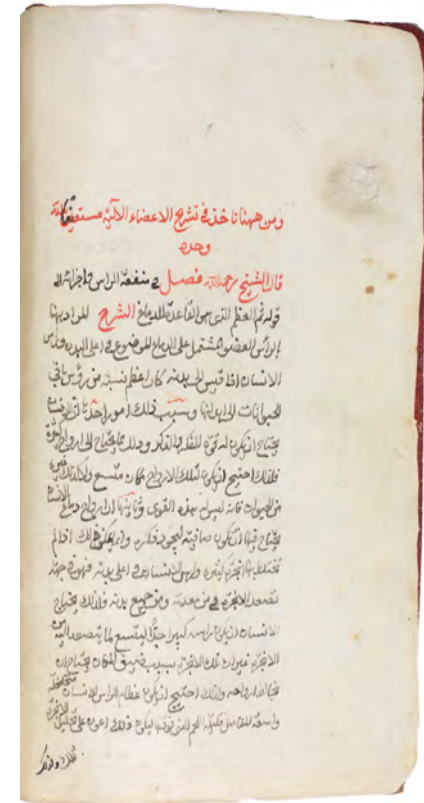 ومن ههنا ناخذ فى تشريح الاعضاء الآلية مستعينا بالله
وحده
قال الشيخ رحمه الله فصل فى منفعة الراس واجزائه الى
قوله ثم العظم الذى هو القاعدة للدماغ الشرح المراد ههنا
بالراس العضو المشتمل على الدماغ الموضوع فى اعلى البدن وراس
الانسان اذا قيس الى بدنه كان اعظم نسبة من رؤس باقى
الحيوانات الى ابدانها وسبب ذلك امور احدها ان الانسان
يحتاج ان يكون له قوة للفكر والذكر وذلك مما يحتاج الى ارواح كثيرة
فلذلك احتيج ان يكون لتلك الارواح مكان متسع ولا كذلك غيره
من الحيوان فانه ليس له هذه القوى وثانيها ان ارواح دماغ الانسان
يحتاج فيها ان تكون صافية ليجود فكره وانما يمكن ذلك اذا لم
تختلط بها ابخرة كثيرة وراس الانسان فى اعلى بدنه فهو فى جهة
تصعد الابخرة من معدته ومن جميع بدنه فلذلك يحتاج
الانسان ان يكون راسه كبيرا جدا ليتسع لما يتصعد اليه من
الابخرة غير ان تلك الابخرة بسبب ضيق المكان يحتاج ان
ارواحه ولذلك احتيج ان يكون عظام الراس للانسان متخلخلة
واسعة المفاصل قليلة اللحم الذى فوقها ليكون ذلك اعون على تحليل الابخرة